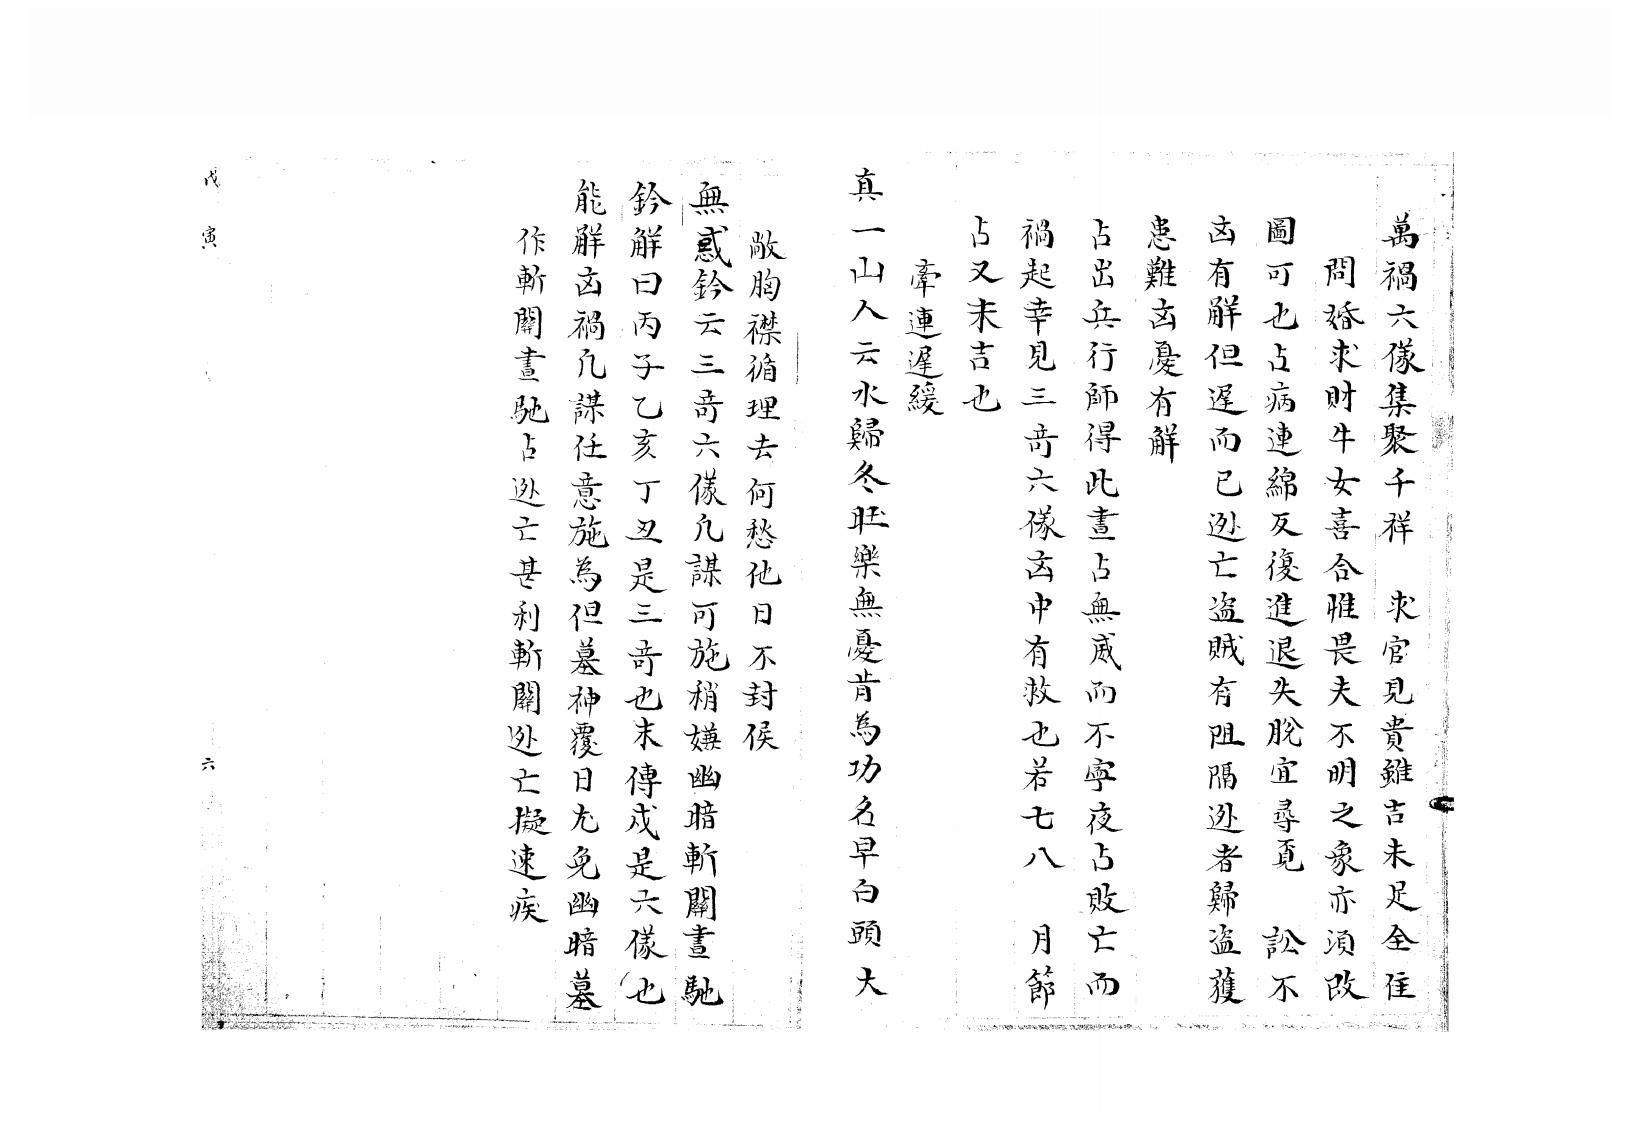 萬禍六儀集聚千祥　求官見貴雖吉未足全佳
問婚求財牛女喜合惟畏夫不明之象亦須改
圖可也占病連綿反復進退失脫宜尋覓　訟不
凶有解但遲而已逃亡盜賊有阻隔逃者歸盜獲
患難凶憂有解
占出兵行師得此晝占無威而不寧夜占敗亡而
禍起幸見三奇六儀凶中有救也若七八　月節
占又末吉也
牽連遲緩
真一山人云水歸冬旺樂無憂肯為功名早白頭大
敞胸襟循理去何愁他日不封侯
無惑鈐云三奇六儀凡謀可施稍嫌幽暗斬關晝馳
鈐解曰丙子乙亥丁丑是三奇也末傳戌是六儀也
能解凶禍凡謀任意施為但墓神覆日尤免幽暗墓
作斬關晝馳占逃亡甚利斬關逃亡擬速疾
戊寅　六